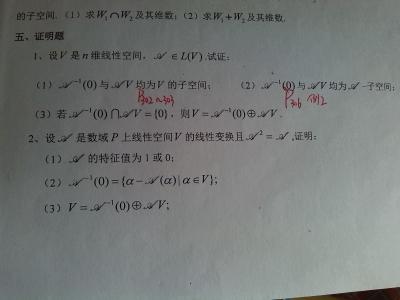 的子空间.（1）求W₁∩W₂及其维数;（2）求W₁+W₂及其维数.
五、证明题
1、设V是n维线性空间，𝒜∈L(V).试证:
（1）𝒜⁻¹(0)与𝒜V均为V的子空间;（2）𝒜⁻¹(0)与𝒜V均为𝒜-子空间;
P302~303 P306 例2
（3）若𝒜⁻¹(0)∩𝒜V={0}，则V=𝒜⁻¹(0)⊕𝒜V.
2、设𝒜是数域P上线性空间V的线性变换且𝒜²=𝒜,证明:
（1）𝒜的特征值为1或0;
（2）𝒜⁻¹(0)={α-𝒜(α)|α∈V};
（3）V=𝒜⁻¹(0)⊕𝒜V;